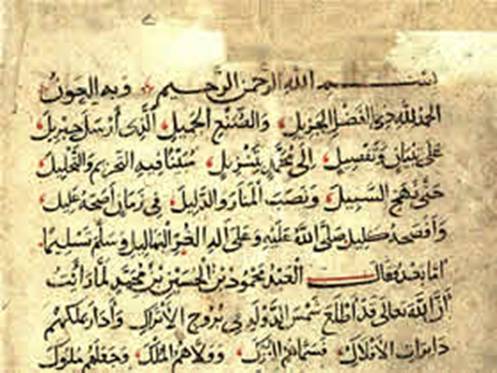 بِسْمِ اللهِ الرَّحْمنِ الرَّحِيمِ وَبِهِ العَونُ
الحمدُ للهِ ذِي الفَضْلِ الجَزِيلِ وَالصُّنْعِ الجَمِيلِ الَّذِي أَرْسَلَ جِبْرِيلَ
عَلَى تِبْيَانٍ وَتَفْصِيلٍ إِلَى مُحَمَّدٍ بِتَنْزِيلٍ مُبَيِّنًا فِيهِ التَّحْرِيمَ وَالتَّحْلِيلَ
حَتَّى نَهَجَ السَّبِيلَ وَنَصَبَ المَنَارَ وَالدَّلِيلَ فِي زَمَانٍ أَصَحُّهُ عَلِيلٌ
وَأَفْصَحُهُ كَلِيلٌ صَلَّى اللهُ عَلَيْهِ وَعَلَى آلِهِ الغُرِّ البَهَالِيلِ وَسَلَّمَ تَسْلِيمًا
أمّا بَعْدُ فَقَالَ العَبْدُ مَحْمُودُ بْنُ الحُسَيْنِ بْنِ مُحَمَّدٍ لَمَّا رَأَيْتُ
أَنَّ اللهَ تَعَالَى قَدْ أَطْلَعَ شَمْسَ الدَّوْلَةِ فِي بُرُوجِ الأَتْرَاكِ وَأَدَارَ بِمُلْكِهِمْ
دَائِرَاتِ الأَفْلَاكِ فَسَمَّاهُمُ التُّرْكَ وَوَلَّاهُمُ المُلْكَ وَجَعَلَهُمْ مُلُوكَ